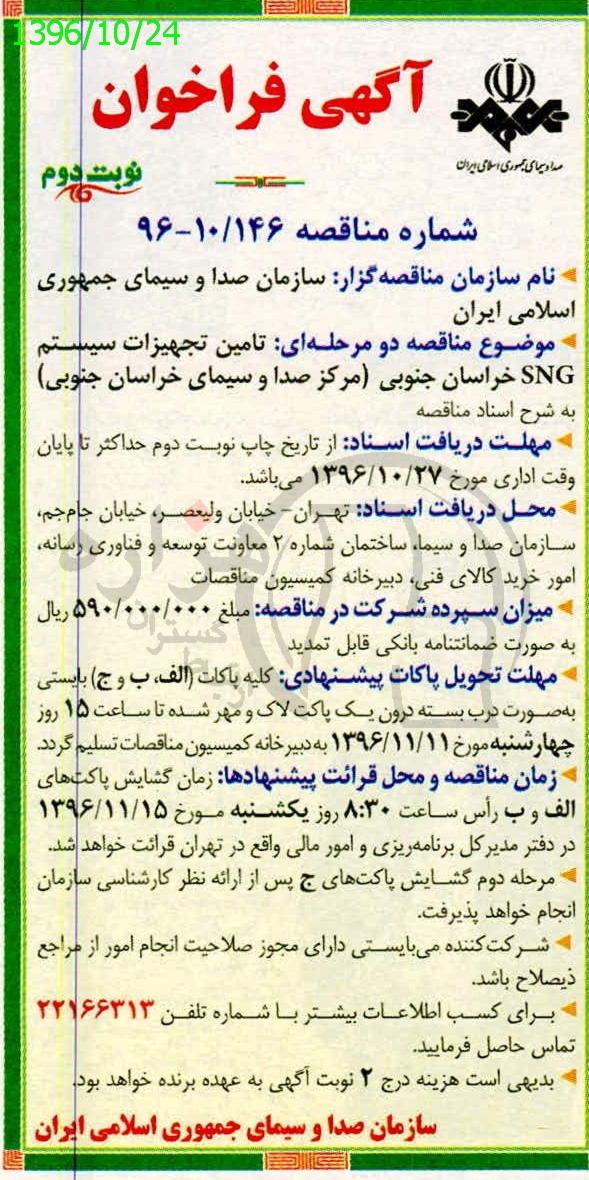 1396/10/24
آگهی فراخوان
صدا و سیمای جمهوری اسلامی ایران
نوبت دوم
شماره مناقصه ۹۶-۱۰/۱۴۶
نام سازمان مناقصه‌گزار: سازمان صدا و سیمای جمهوری
اسلامی ایران
موضوع مناقصه دو مرحله‌ای: تامین تجهیزات سیستم
SNG خراسان جنوبی (مرکز صدا و سیمای خراسان جنوبی)
به شرح اسناد مناقصه
مهلت دریافت اسناد: از تاریخ چاپ نوبت دوم حداکثر تا پایان
وقت اداری مورخ ۱۳۹۶/۱۰/۲۷ می‌باشد.
محل دریافت اسناد: تهران- خیابان ولیعصر، خیابان جام‌جم،
سازمان صدا و سیما، ساختمان شماره ۲ معاونت توسعه و فناوری رسانه،
امور خرید کالای فنی، دبیرخانه کمیسیون مناقصات
میزان سپرده شرکت در مناقصه: مبلغ ۵۹۰/۰۰۰/۰۰۰ ریال
به صورت ضمانتنامه بانکی قابل تمدید
مهلت تحویل پاکات پیشنهادی: کلیه پاکات (الف، ب و ج) بایستی
به‌صورت درب بسته درون یک پاکت لاک و مهر شده تا ساعت ۱۵ روز
چهارشنبه مورخ ۱۳۹۶/۱۱/۱۱ به دبیرخانه کمیسیون مناقصات تسلیم گردد.
زمان مناقصه و محل قرائت پیشنهادها: زمان گشایش پاکت‌های
الف و ب رأس ساعت ۸:۳۰ روز یکشنبه مورخ ۱۳۹۶/۱۱/۱۵
در دفتر مدیرکل برنامه‌ریزی و امور مالی واقع در تهران قرائت خواهد شد.
مرحله دوم گشایش پاکت‌های ج پس از ارائه نظر کارشناسی سازمان
انجام خواهد پذیرفت.
شرکت‌کننده می‌بایستی دارای مجوز صلاحیت انجام امور از مراجع
ذیصلاح باشد.
برای کسب اطلاعات بیشتر با شماره تلفن ۲۲۱۶۶۳۱۳
تماس حاصل فرمایید.
بدیهی است هزینه درج ۲ نوبت آگهی به عهده برنده خواهد بود.
سازمان صدا و سیمای جمهوری اسلامی ایران